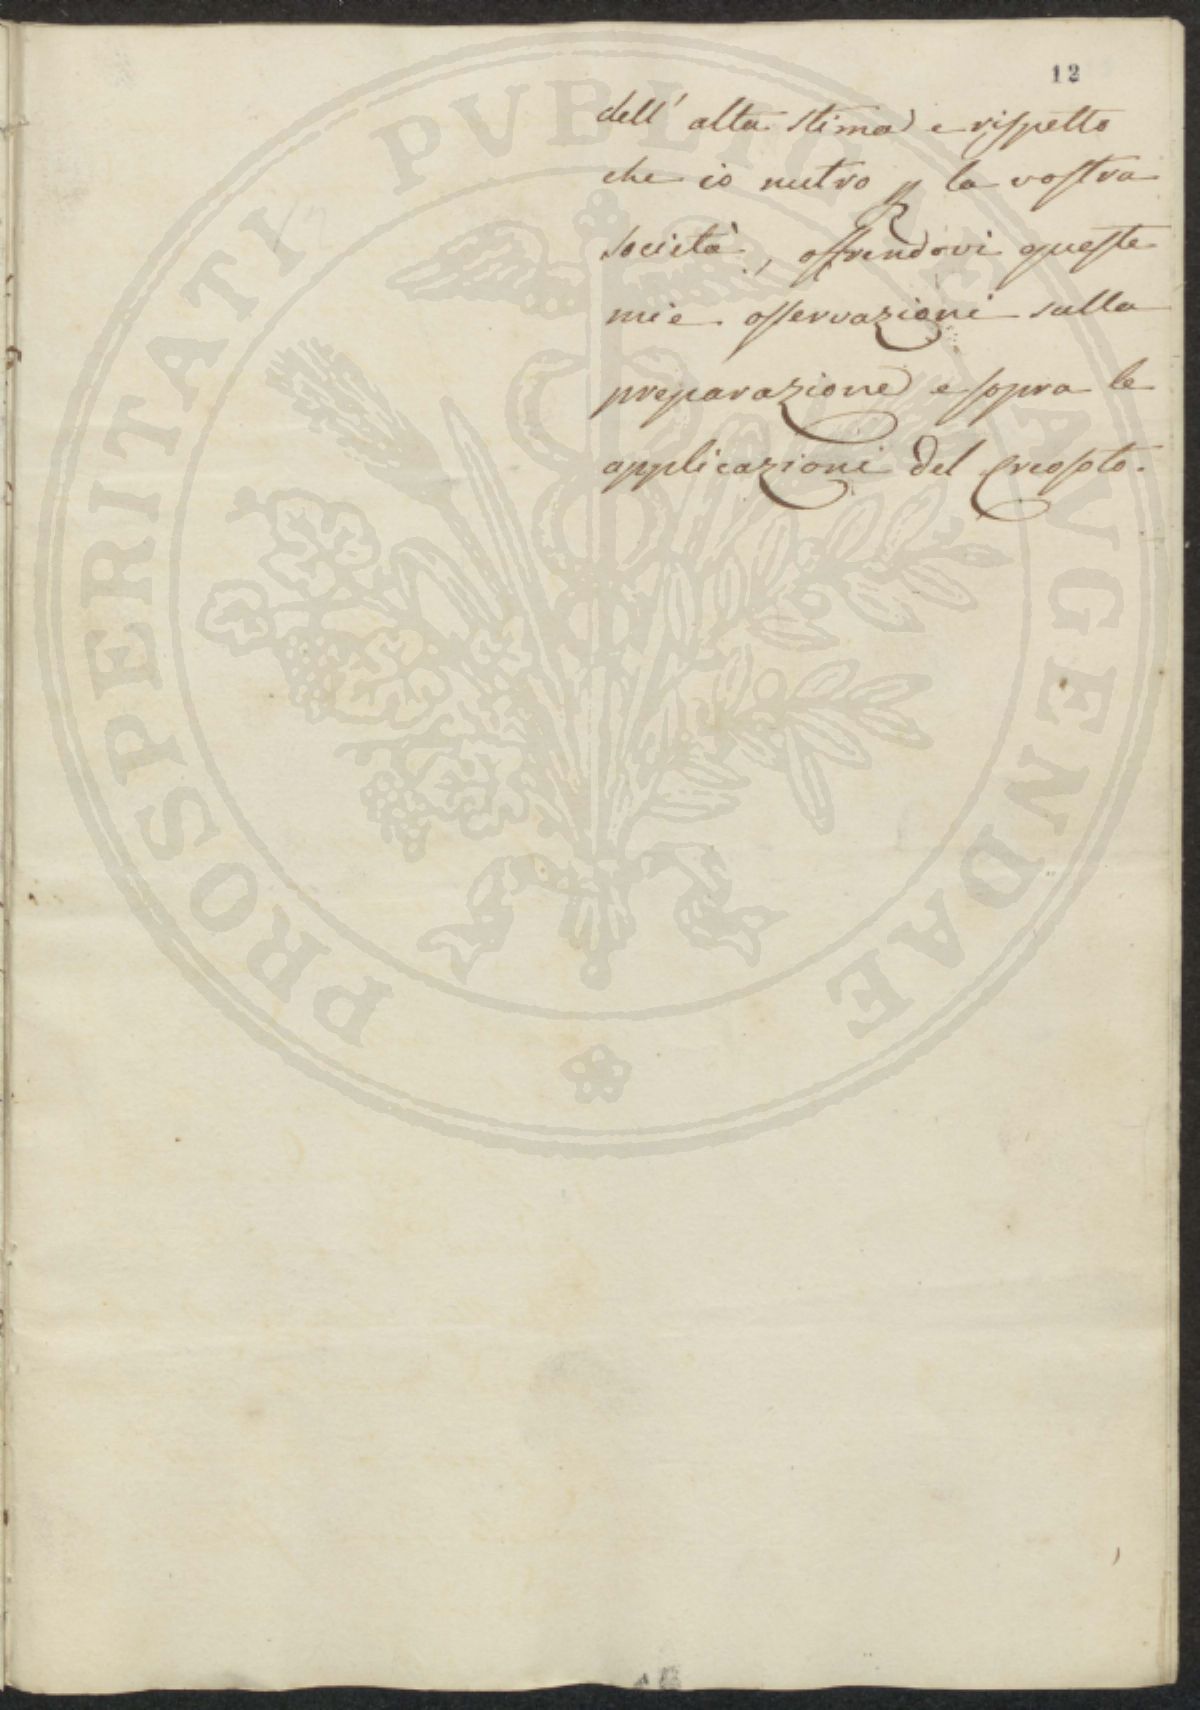 12
dell' alta stima e rispetto
che io nutro p la vostra
società, offrendovi queste
mie osservazioni sulla
preparazione e sopra le
applicazioni del Creosoto.
PROSPERITATI PVBLICAE AVGENDAE